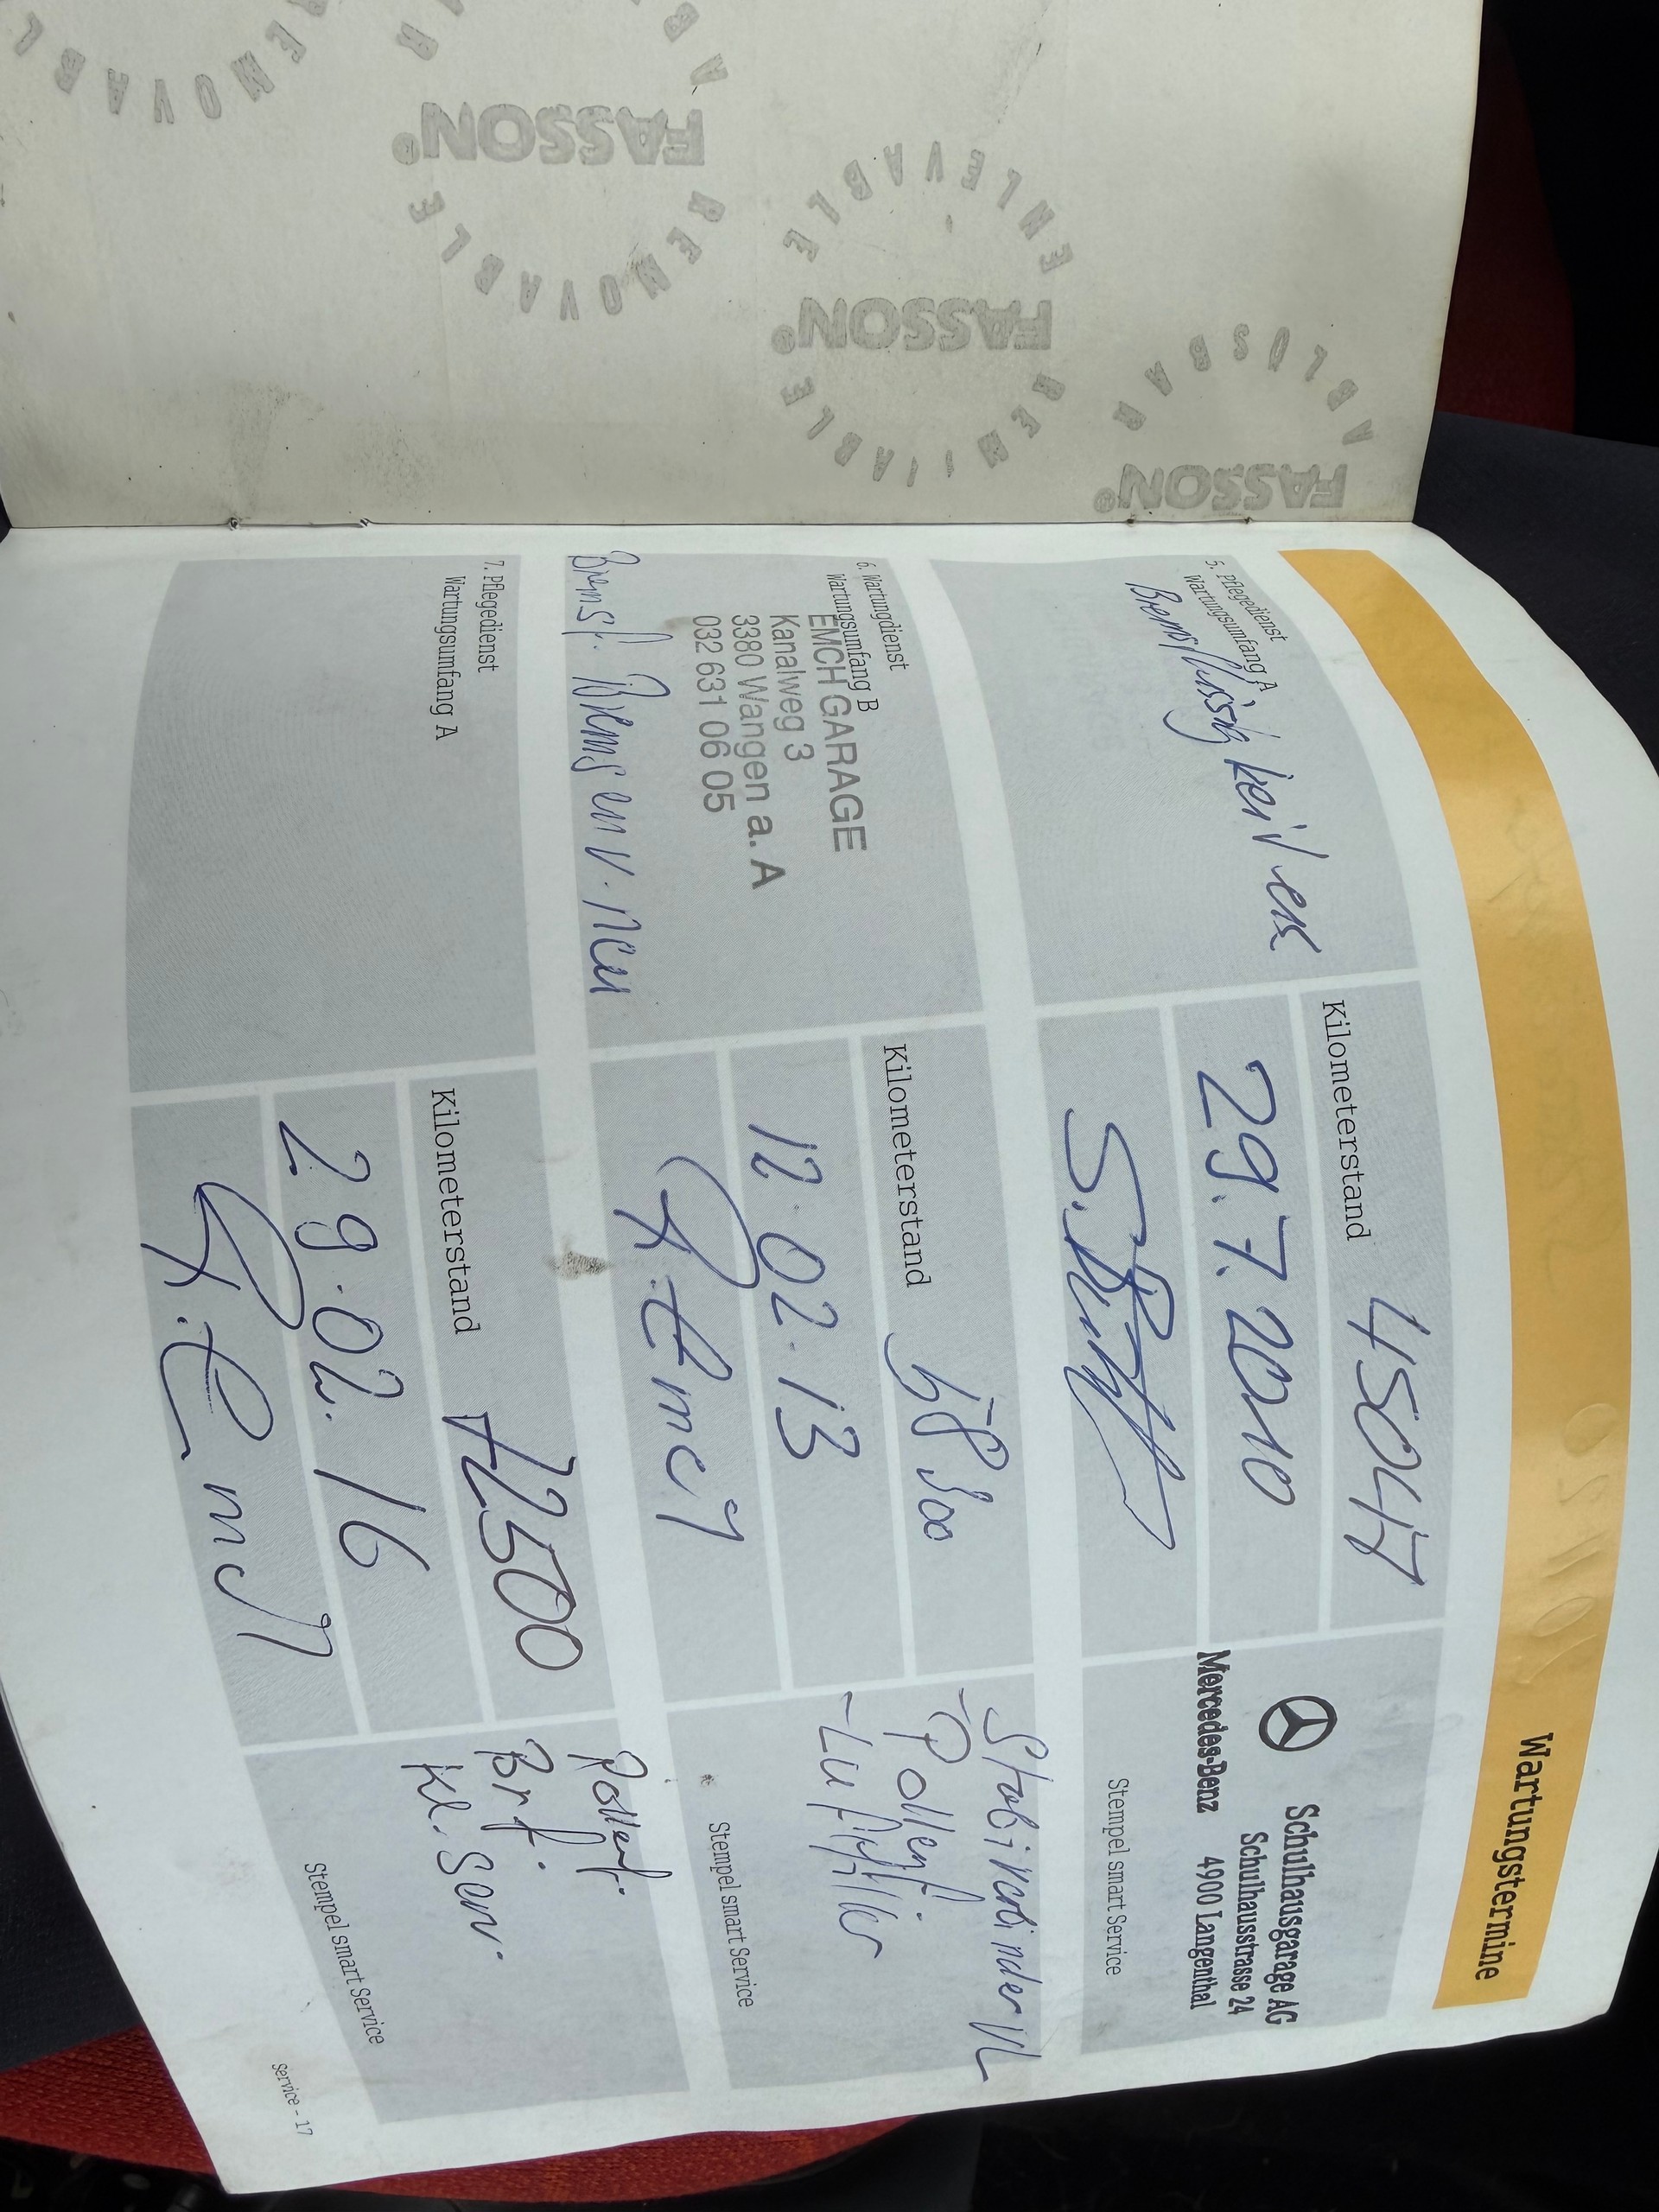 Wartungstermine
5. Pflegedienst
Wartungsumfang A
Bremsflüssigkeit ers
Kilometerstand 45047
29.7.2010
Schulhausgarage AG
Schulhausstrasse 24
Mercedes-Benz 4900 Langenthal
Stempel smart Service
6. Wartungdienst
Wartungsumfang B
EMCH GARAGE
Kanalweg 3
3380 Wangen a. A
032 631 06 05
Bremsf. Bremsen v. neu
Kilometerstand 58300
12.02.13
R. Emch
Stabiverbinder VL
- Pollenf.
- Luftfilter
Stempel smart Service
7. Pflegedienst
Wartungsumfang A
Kilometerstand 72500
29.02.16
R. Emch
Pollenf.
Brf.
Kl. Serv.
Stempel smart Service
Service - 17
ABLE
REMOVABLE
FASSON®
REMOVABLE
ENLEVABLE
FASSON®
FASSON®